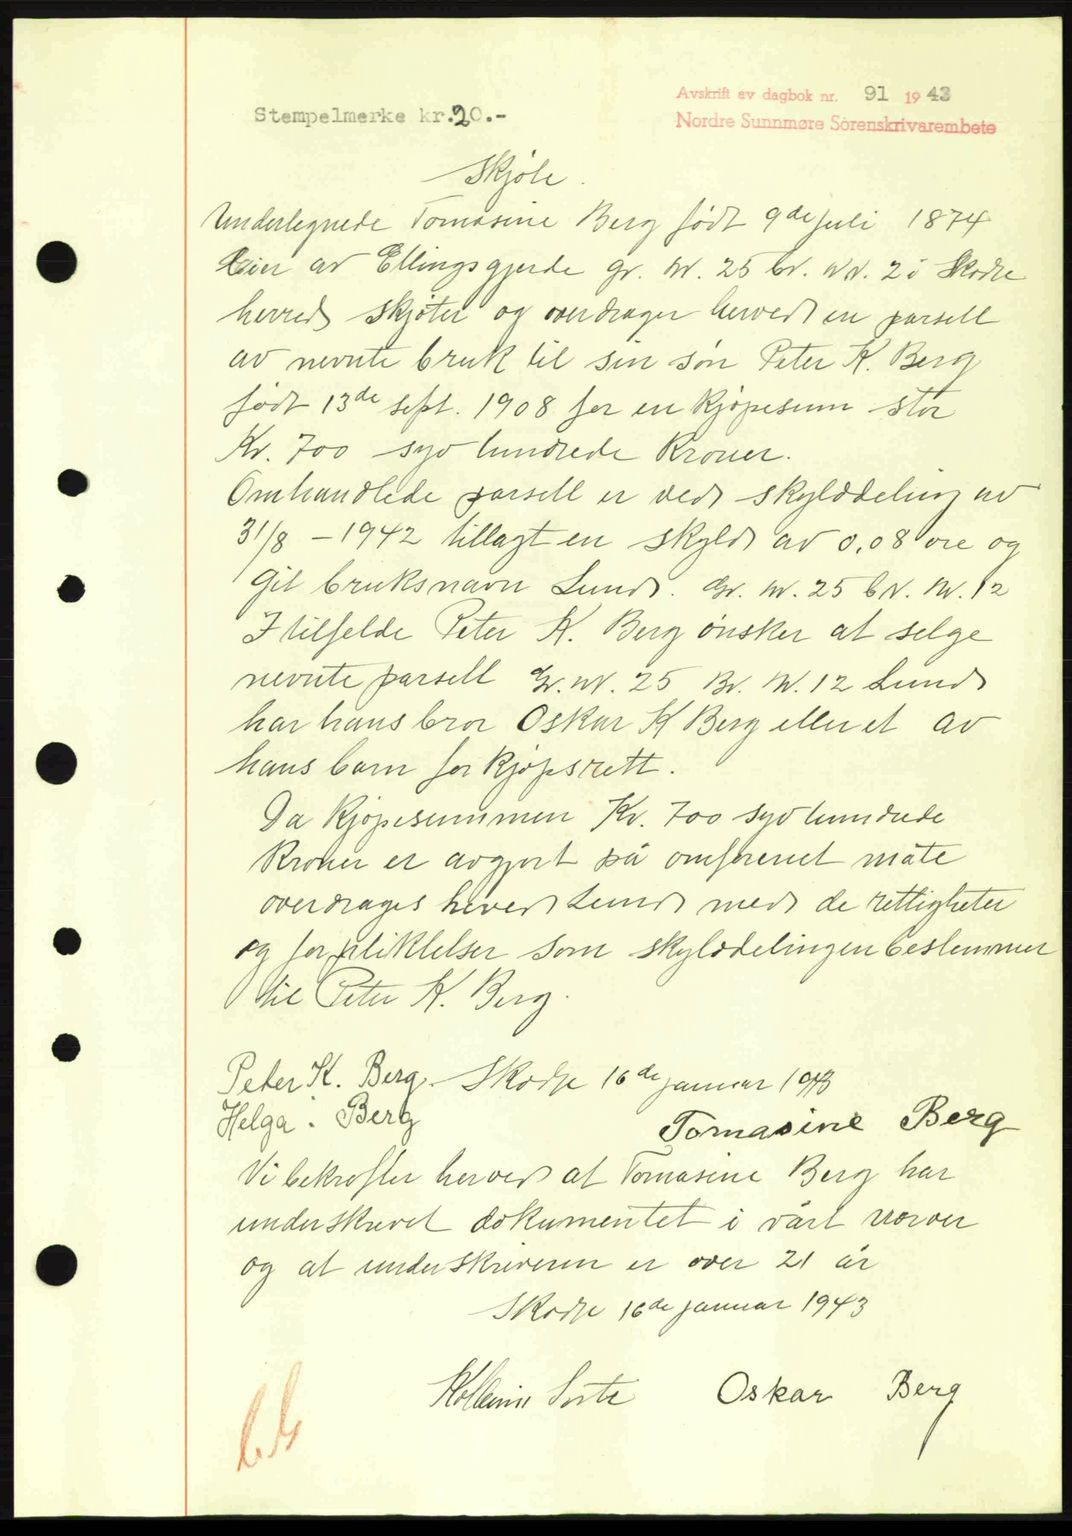 Avskrift av dagbok nr. 91 1943
Nordre Sunnmøre Sorenskrivarembete
Stempelmerke kr.20.-
Skjøte.
Undertegnede Tomasine Berg født 9de juli 1874
Eier av Ellingsgjerde gr. nr. 25 br. nr. 2 i Skodje
herred skjøter og overdrager herved en parsell
av nevnte bruk til sin søn Peter K. Berg
født 13de sept. 1908 for en kjøpesum stor
Kr. 700 syv hundrede kroner.
Omhandlede parsell er ved skylddeling av
31/8 - 1942 tillagt en skyld av 0,08 øre og
git bruksnavn Lund. Gr. nr. 25 br. nr. 12
I tilfelde Peter K. Berg ønsker at selge
nevnte parsell Gr. nr. 25 Br. nr. 12 Lund
har hans bror Oskar K Berg eller et av
hans barn forkjøpsrett.
Da kjøpesummen Kr. 700 syv hundrede
kroner er avgjort på omforenet måte
overdrages herved Lund med de rettigheter
og forpliktelser som skylddelingen bestemmer
til Peter K. Berg.
Peter K. Berg. Skodje 16de januar 1943
Helga Berg
Tomasine Berg
Vi bekrefter herved at Tomasine Berg har
underskrevet dokumentet i vårt nærver
og at underskriveren er over 21 år
Skodje 16de januar 1943
Oskar Berg